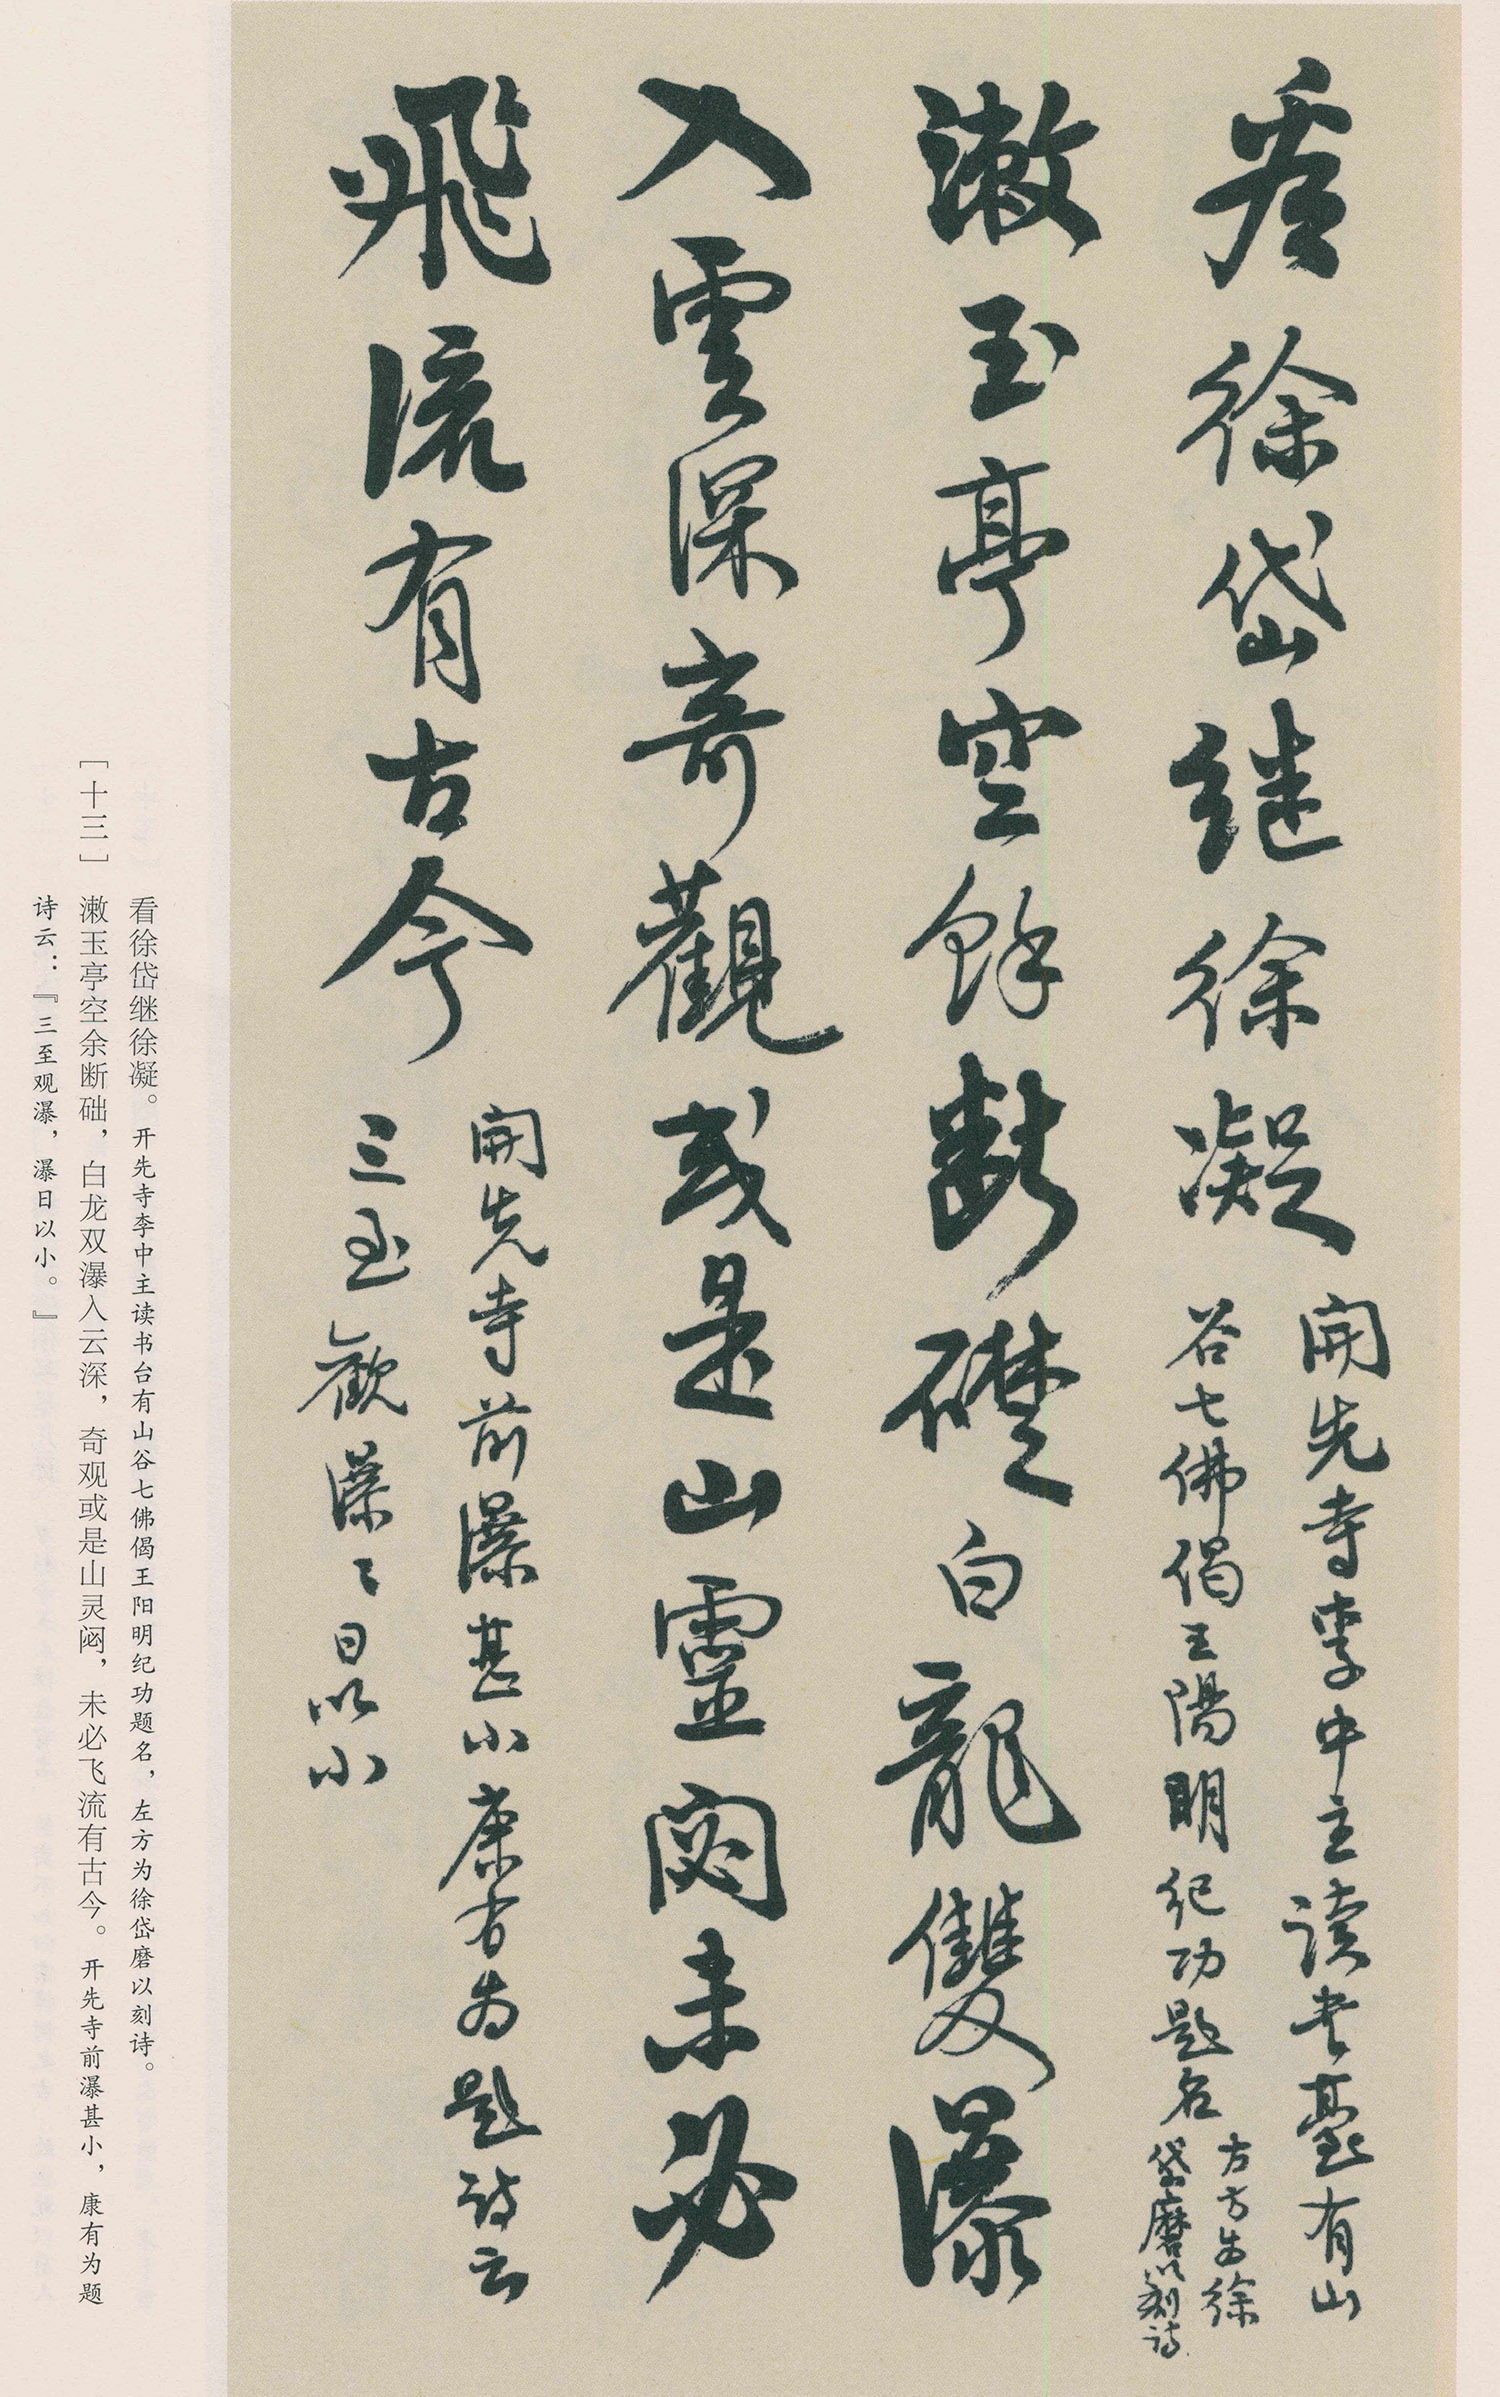 看徐岱继徐凝
開先寺李中主读书臺有山
谷七佛偈王陽明纪功题名
左方为徐
岱磨以刻诗
漱玉亭空餘断礎白龍雙瀑
入雲深奇觀或是山靈閟未必
飛流有古今
開先寺前瀑甚小康有为题诗云
三至觀瀑々日以小
看徐岱继徐凝。开先寺李中主读书台有山谷七佛偈王阳明纪功题名，左方为徐岱磨以刻诗。
［十三］ 漱玉亭空余断础，白龙双瀑入云深，奇观或是山灵闷，未必飞流有古今。开先寺前瀑甚小，康有为题
诗云：『三至观瀑，瀑日以小。』